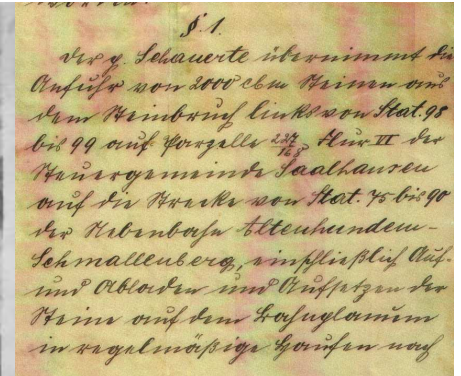 § 1.
Der p. Schauerte übernimmt die
Anfuhr von 2000 cbm Steinen aus
dem Steinbruch links von Stat. 98
bis 99 auf Parzelle 227/168 Flur VI der
Steuergemeinde Saalhausen
auf die Strecke von Stat. 75 bis 90
der Nebenbahn Altenhundem-
Schmallenberg, einschließlich Auf-
und Abladen und Aufsetzen der
Steine auf dem Bahnplanum
in regelmäßige Haufen nach